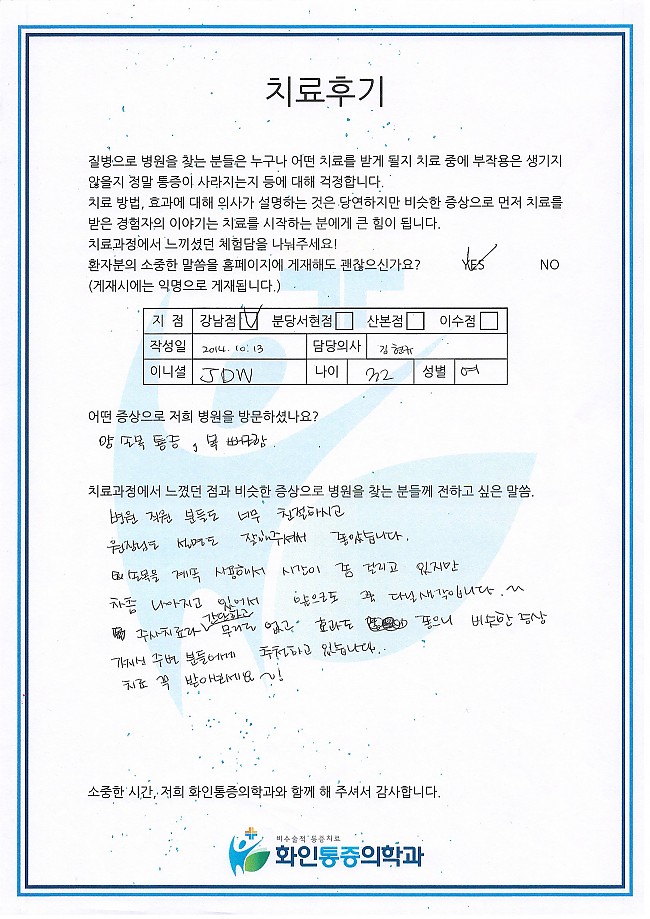 치료후기
질병으로 병원을 찾는 분들은 누구나 어떤 치료를 받게 될지 치료 중에 부작용은 생기지
않을지 정말 통증이 사라지는지 등에 대해 걱정합니다.
치료 방법, 효과에 대해 의사가 설명하는 것은 당연하지만 비슷한 증상으로 먼저 치료를
받은 경험자의 이야기는 치료를 시작하는 분에게 큰 힘이 됩니다.
치료과정에서 느끼셨던 체험담을 나눠주세요!
환자분의 소중한 말씀을 홈페이지에 게재해도 괜찮으신가요? YES NO
(게재시에는 익명으로 게재됩니다.)
지 점 강남점 분당서현점 산본점 이수점
작성일 2014. 10. 13 담당의사 김현규
이니셜 JDW 나이 32 성별 여
어떤 증상으로 저희 병원을 방문하셨나요?
양 손목 통증, 목 뻐근함.
치료과정에서 느꼈던 점과 비슷한 증상으로 병원을 찾는 분들께 전하고 싶은 말씀.
병원 직원 분들도 너무 친절하시고
원장님도 설명도 잘해주셔서 좋았습니다.
손목을 계속 사용해서 시간이 좀 걸리고 있지만
차츰 나아지고 있어서 앞으로도 꼭 다닐 생각입니다.~
간단하고
주사치료라 무리도 없고 효과도 좋으니 비슷한 증상
가지신 주변 분들에게 추천하고 있습니다..
치료 꼭 받아보세요~!
소중한 시간, 저희 화인통증의학과와 함께 해 주셔서 감사합니다.
비수술적 통증치료
화인통증의학과